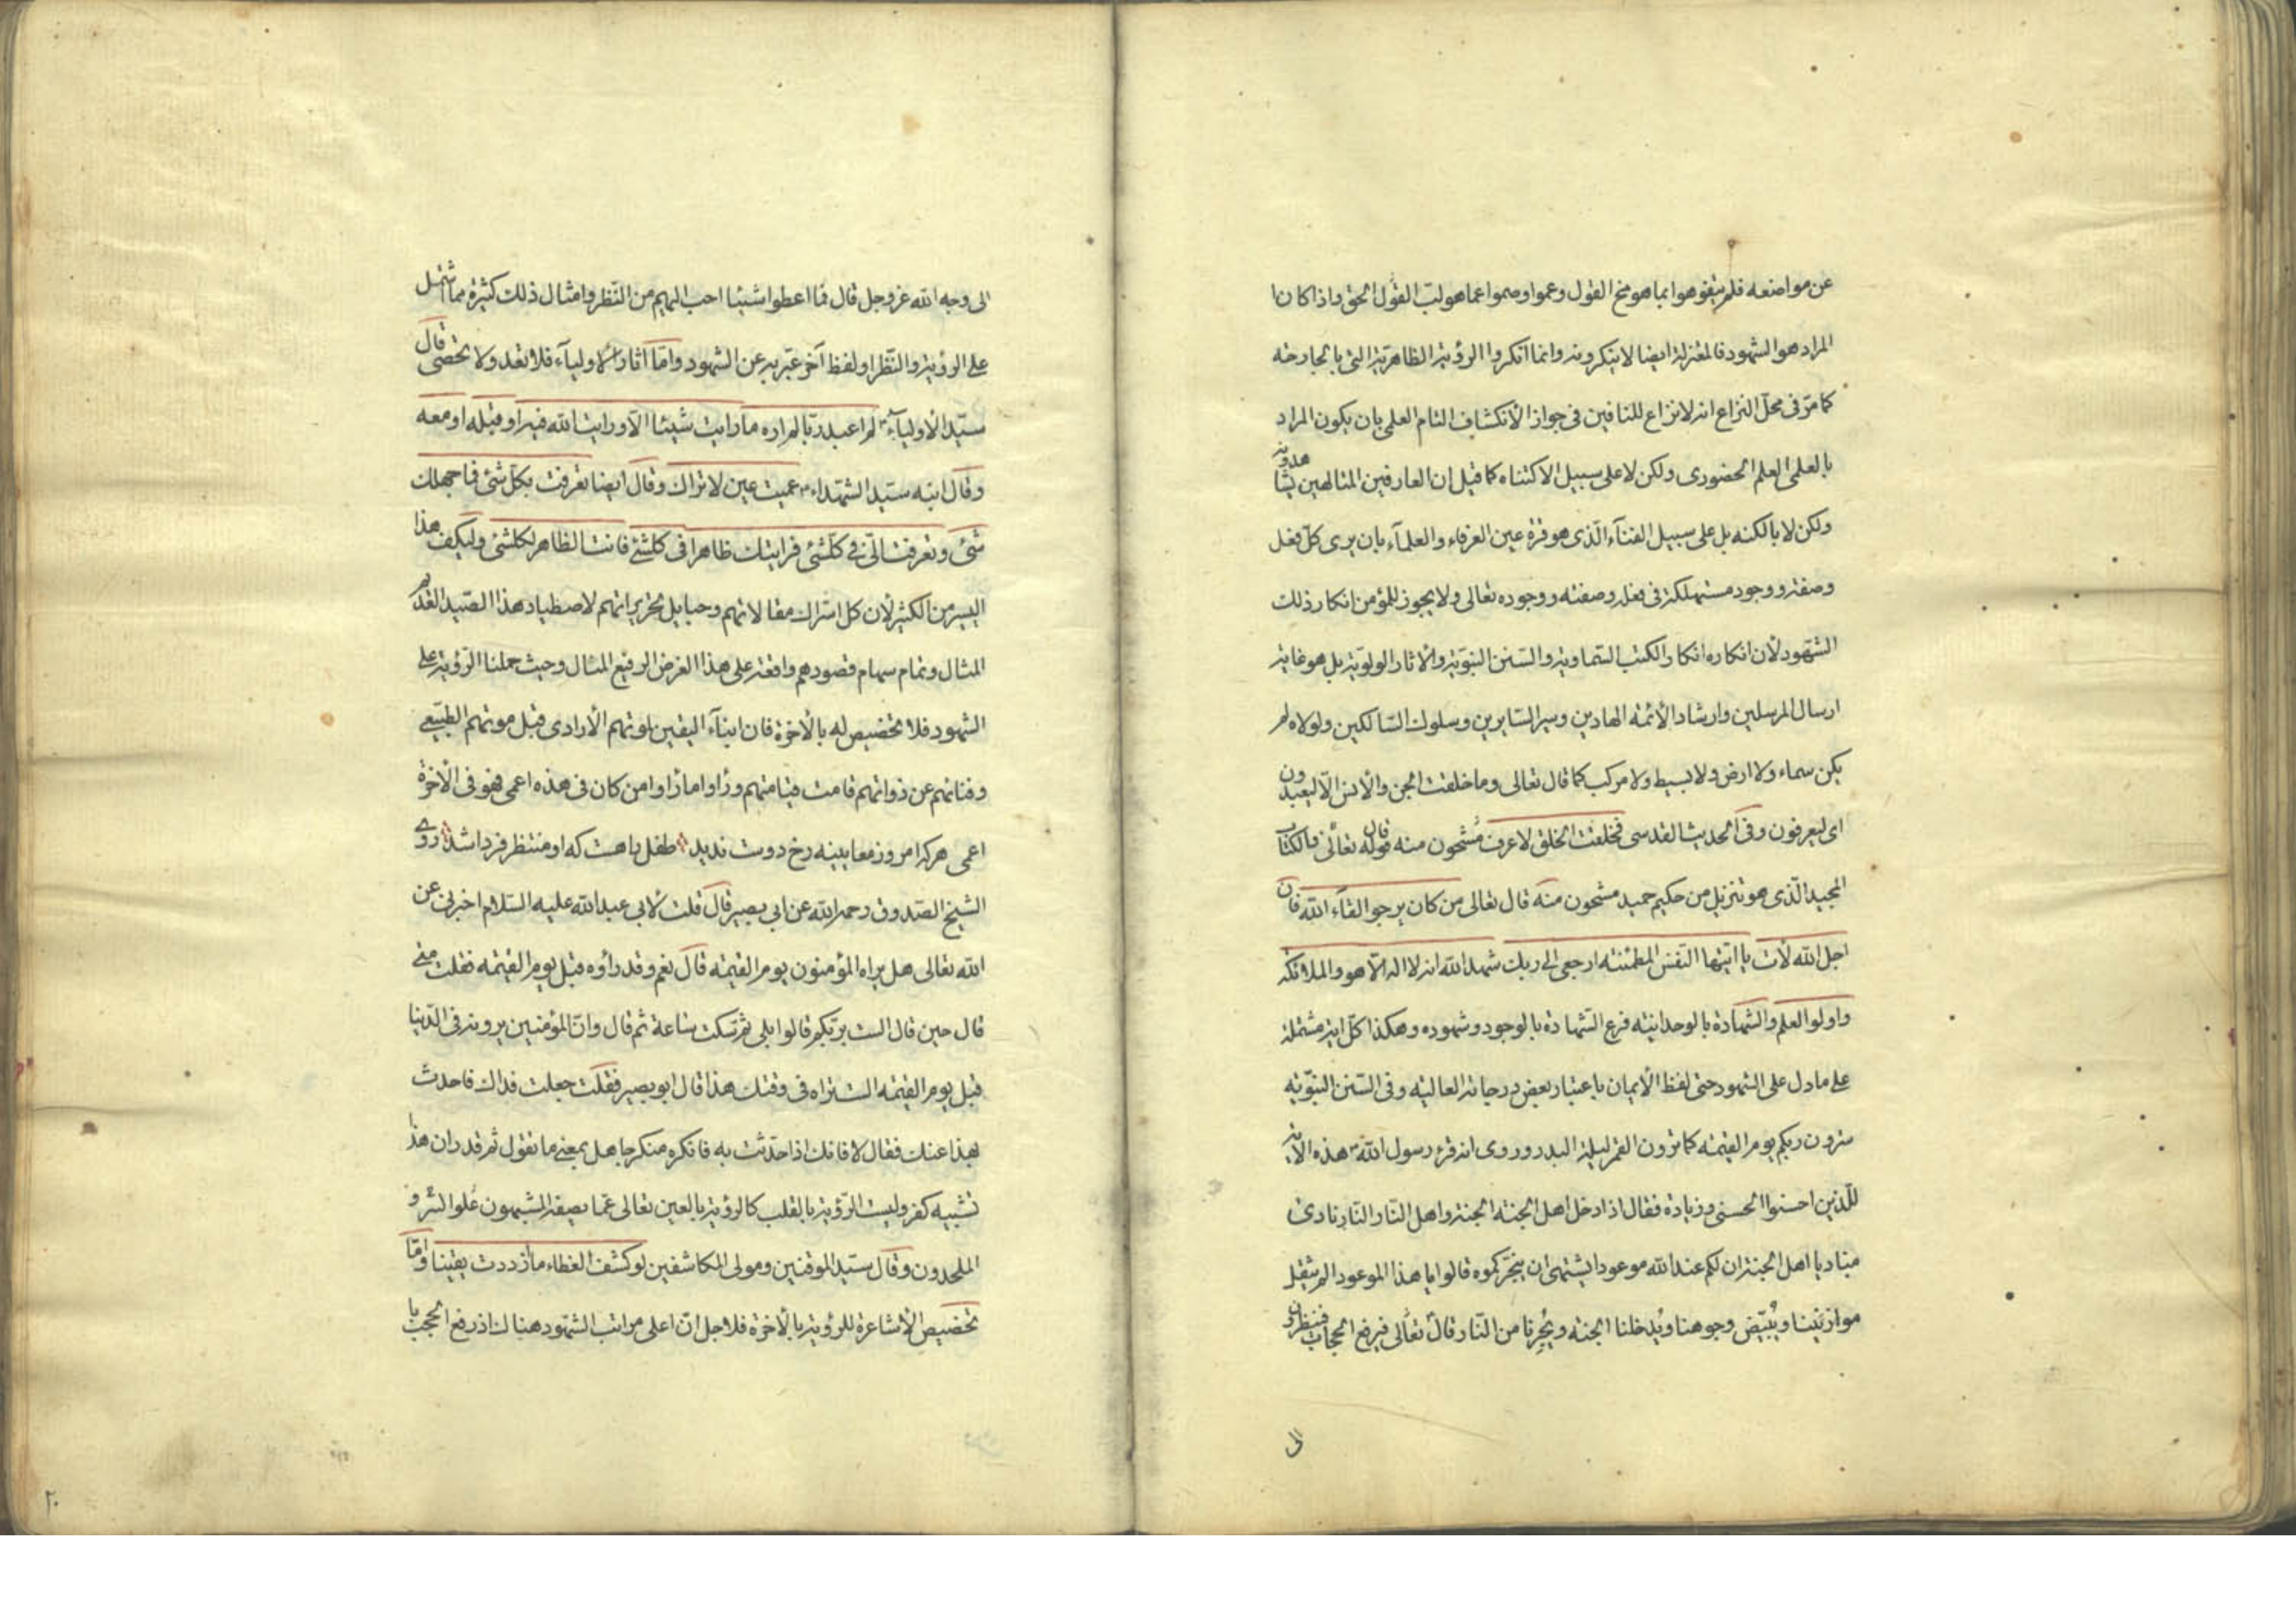 عن مواضعه فلم يتفوهوا بما هو مخ القول وعموا وصموا عما هو لب القول الحق واذا كان
المراد هو الشهود فالمعتزلة ايضا لا ينكرونه وانما انكروا الرؤية الظاهرية التى بالجارحة
كما مرّ فى محلّ النزاع انه لا نزاع للنافين فى جواز الأنكشاف التام العلمى بان يكون المراد
بالعلمى العلم الحضورى ولكن لا على سبيل الاكتناه كما قيل ان العارفين المتالهين يشاهدونه
ولكن لا بالكنه بل على سبيل الفناء الّذى هو قرة عين العرفاء والعلمآء بان يرى كلّ فعل
وصفة ووجود مستهلكة فى فعله وصفته ووجوده تعالى ولا يجوز للمؤمن انكار ذلك
الشهود لأن انكاره انكار الكتب السّماوية والسّنن النبوّية والآثار الولوّية بل هو غاية
ارسال المرسلين وارشاد الأئمة الهادين وسير السّايرين وسلوك السّالكين ولولاه لم
يكن سماء ولا ارض ولا بسيط ولا مركب كما قال تعالى وما خلقت الجن والأنس الّا ليعبدون
اى ليعرفون وفى الحديث القدسى فخلقت الخلق لاعرف مشحون منه قوله تعالى فالكتاب
المجيد الّذى هو تنزيل من حكيم حميد مشحون منه قال تعالى من كان يرجوا لقآء الله فان
اجل الله لأت يا ايتها النفس المطمئنة ارجعى الى ربك شهد الله انه لا اله الّا هو والملائكة
واولوا العلم والشهادة بالوحدانية فرع الشهادة بالوجود وشهوده وهكذا كلّ اية مشتملة
على ما دل على الشهود حتى لفظ الأيمان باعتبار بعض درجاته العالية وفى السّنن النبوّية
سترون ربكم يوم القيمة كما ترون القمر ليلة البدر وروى انه قرء رسول الله ص هذه الآية
للّذين احسنوا الحسنى وزيادة فقال اذا دخل اهل الجنة الجنة واهل النّار النّار نادى
مناد يا اهل الجنة ان لكم عند الله موعودا يشتهى ان ينجزكموه قالوا ما هذا الموعود الم يثقل
موازيننا ويُبيّض وجوهنا ويُدخلنا الجنة ويُجِرنا من النّار قال تعالى فيرفع الحجاب فينظرون
الى
الى وجه الله عز وجل قال فما اعطوا شيئا احب اليهم من النّظر وامثال ذلك كثيرة مما اشتمل
على الرؤية والنّظر او لفظ آخر عبّر به عن الشهود وامّا آثار الاوليآء فلا تعد ولا تحصى قال
سيّد الأوليآء ع لم اعبد ربّا لم اره ما رايت شيئا الّا ورايت الله فيه او قبله او معه
وقال ابنه سيّد الشهداء ع عميت عين لا تراك وقال ايضا تعرفت بكلّ شئ فما جهلك
شئ وتعرفت الىّ فى كلّشئ فرايتك ظاهرا فى كلشئ فانت الظاهر لكلشئ وليكف هذا
اليسر من الكثير لأن كل اشراك مقالاتهم وحبايل تحريراتهم لاصطياد هذا الصّيد العديم
المثال وتمام سهام قصودهم واقعة على هذا الغرض الرفيع المنال وحيث حملنا الرّؤية على
الشهود فلا تخصيص له بالأخرة فان ابنآء اليقين بموتهم الأرادى قبل موتهم الطبيعى
وفنائهم عن ذواتهم قامت قيامتهم وراوا ما راوا من كان فى هذه اعمى فهو فى الأخرة
اعمى هركه امروز معاينه رخ دوست نديد طفل راهست كه او منتظر فردا شد روى
الشيخ الصّدوق رحمه الله عن ابى بصير قال قلت لأبى عبد الله عليه السّلام اخبرنى عن
الله تعالى هل يراه المؤمنون يوم القيمة قال نعم وقد رأوه قبل يوم القيمة فقلت متى
قال حين قال الست بربّكم قالوا بلى ثم سكت ساعة ثم قال وانّ المؤمنين يرونه فى الدّنيا
قبل يوم القيمة الست تراه فى وقتك هذا قال ابو بصير فقلت جعلت فداك فاحدث
بهذا عنك فقال لا فانك اذا حدّثت به فانكره منكر جاهل بمعنى ما تقول ثم قدر ان هذا
تشبيه كفر وليست الرّؤية بالقلب كالرؤية بالعين تعالى عمّا يصفه المشبهون علوا
الملحدون وقال سيّد الموقنين ومولى المكاشفين لو كشف الغطاء ما ازددت يقينا وامّا
تخصيص الأشاعرة للرؤية بالأخرة فلاجل انّ اعلى مراتب الشهود هناك اذ رفع الحجب با
٢٠